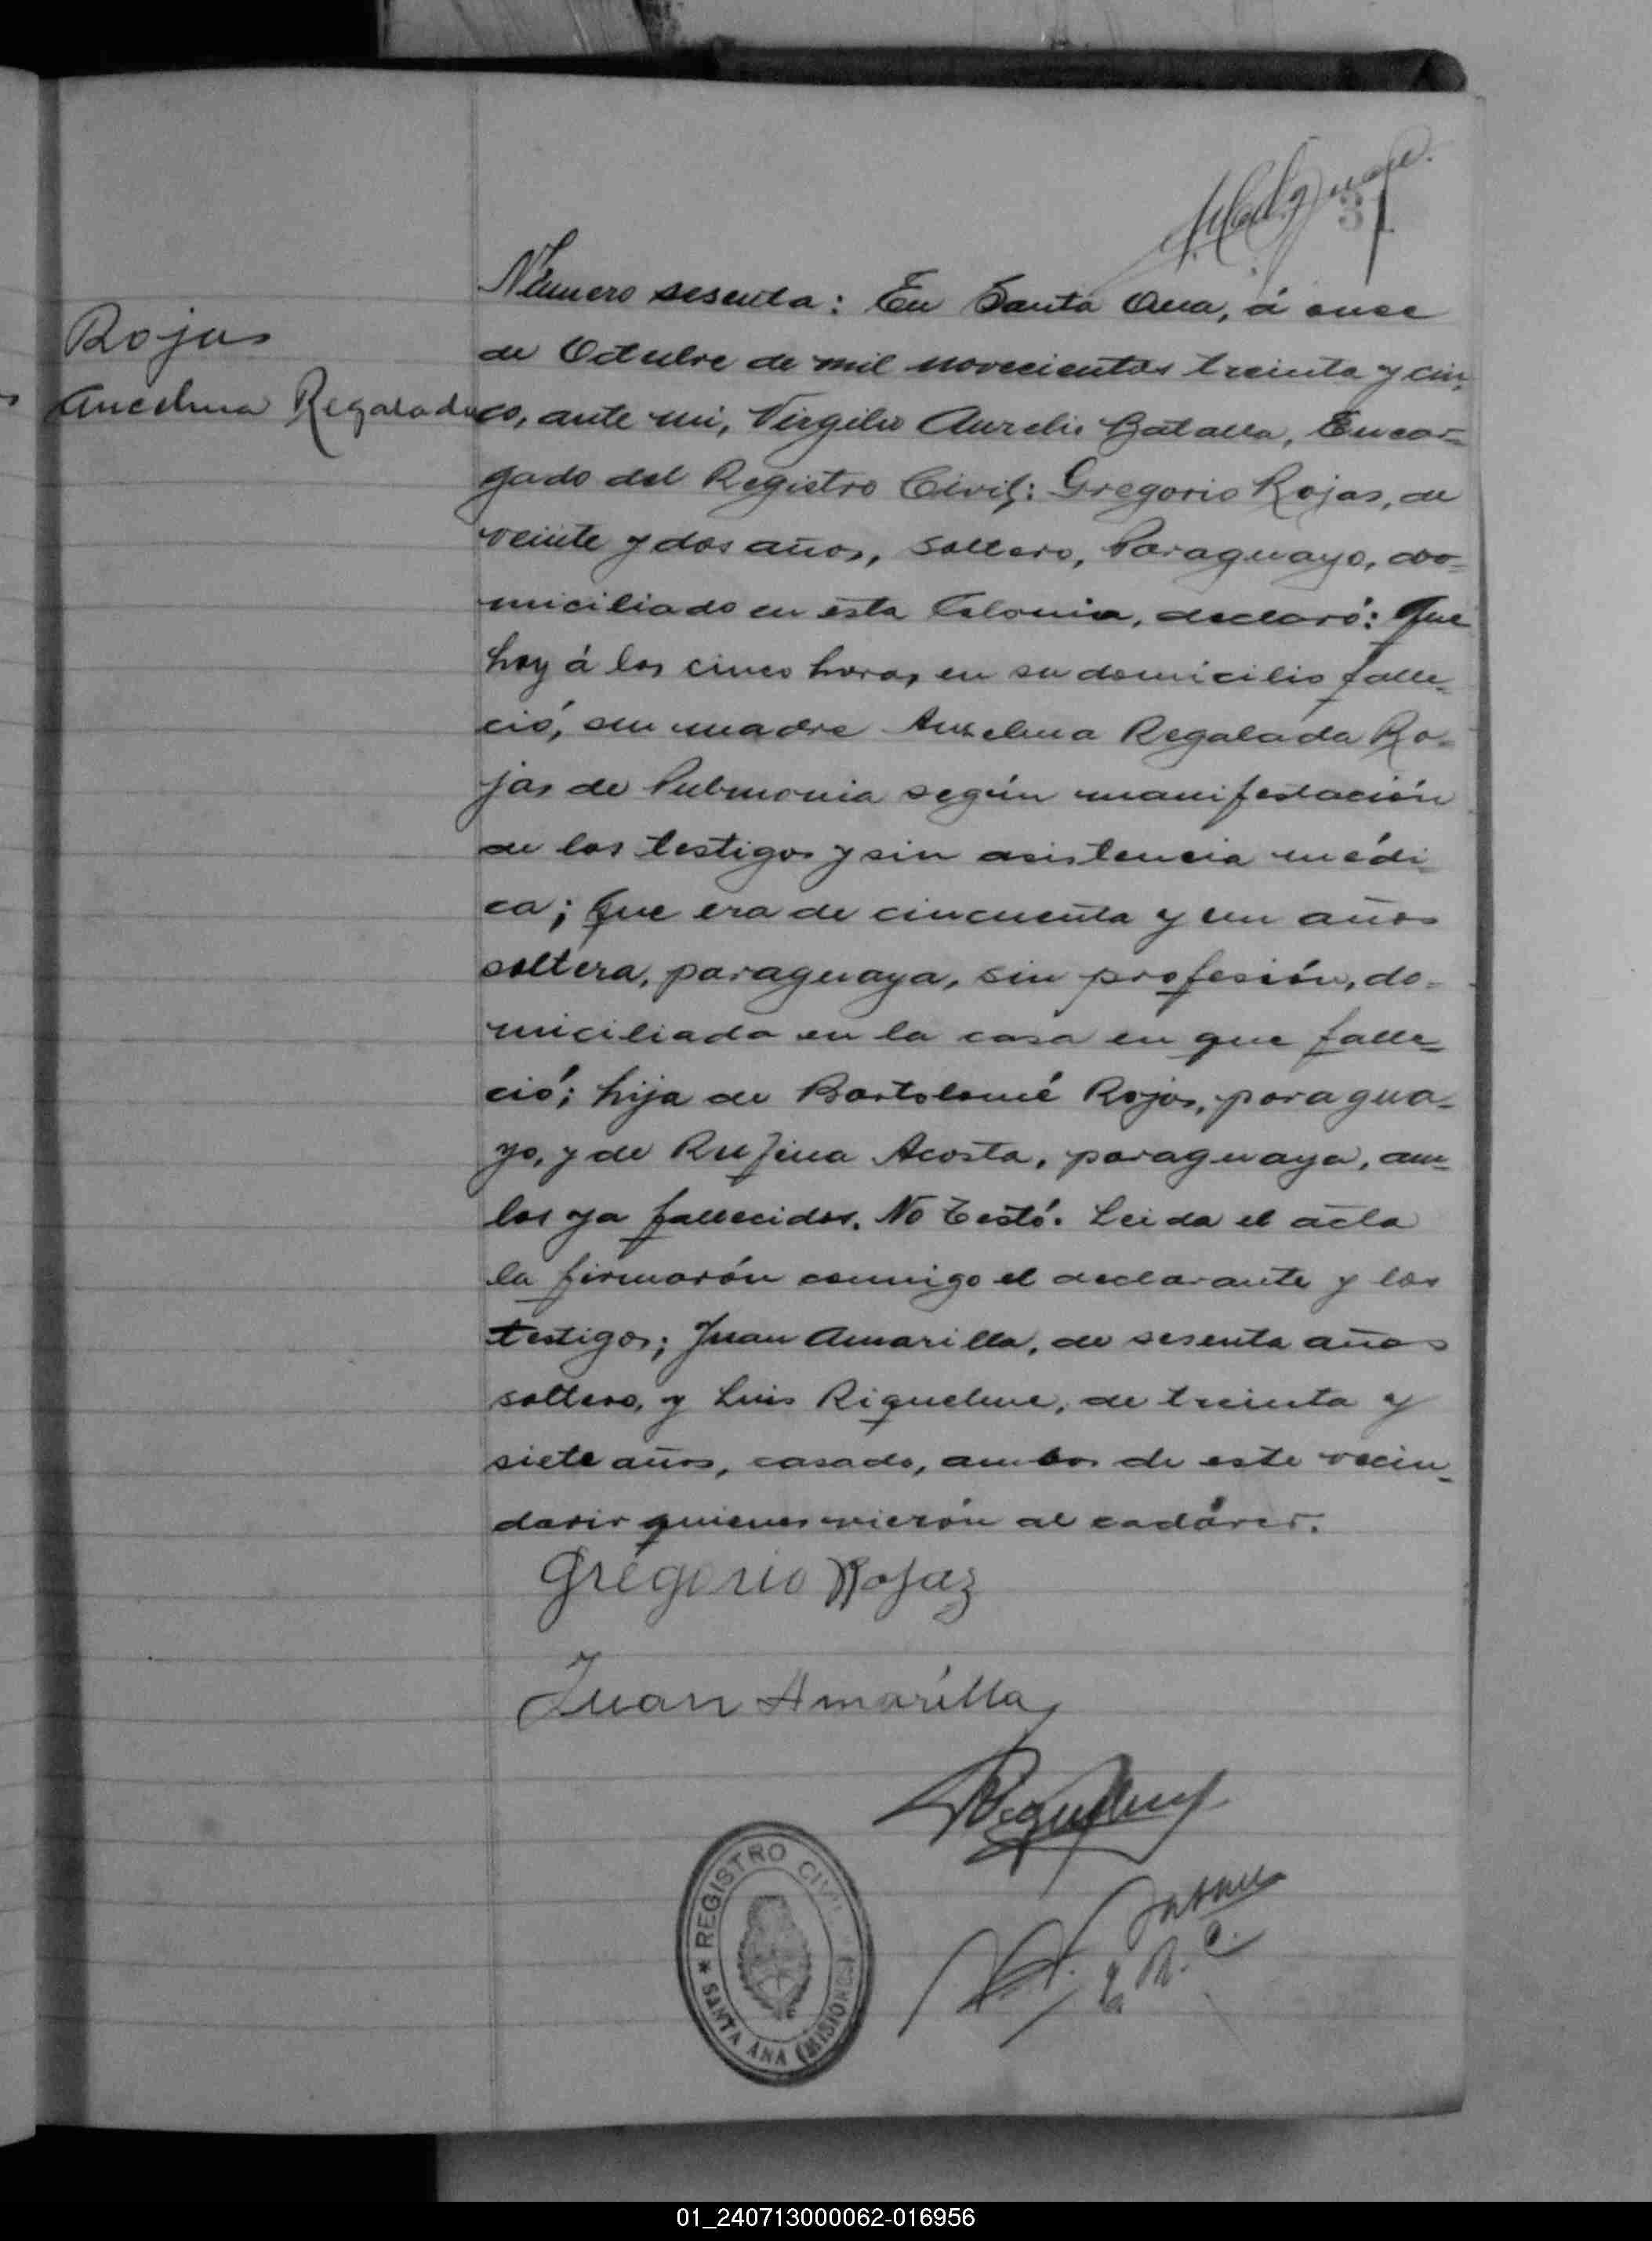 31
Rojas
Ancelma Regalada
Número sesenta: En Santa Ana, á once
de Octubre de mil novecientos treinta y cin-
co, ante mi, Virgilio Aurelio Batalla, Encar-
gado del Registro Civil; Gregorio Rojas, de
veinte y dos años, soltero, Paraguayo, do-
miciliado en esta Colonia, declaró: Que
hoy á las cinco horas, en su domicilio falle-
ció, su madre Anselma Regalada Ro-
jas de Pulmonia según manifestación
de los testigos y sin asistencia médi-
ca; que era de cincuenta y un años
soltera, paraguaya, sin profesión, do-
miciliada en la casa en que falle-
ció; hija de Bartolomé Rojas, paragua-
yo, y de Rufina Acosta, paraguaya, am-
bos ya fallecidos. No Testó. Leida el acta
la firmarón conmigo el declarante y los
testigos; Juan Amarilla, de sesenta años
soltero, y Luis Riquelme, de treinta y
siete años, casado, ambos de este vecin-
dario quienes vierón al cadáver.
Gregorio Rojaz
Juan Amarilla
Riquelme
E. R. C.
* REGISTRO CIVIL *
SANTA ANA (MISIONES)
01_240713000062-016956